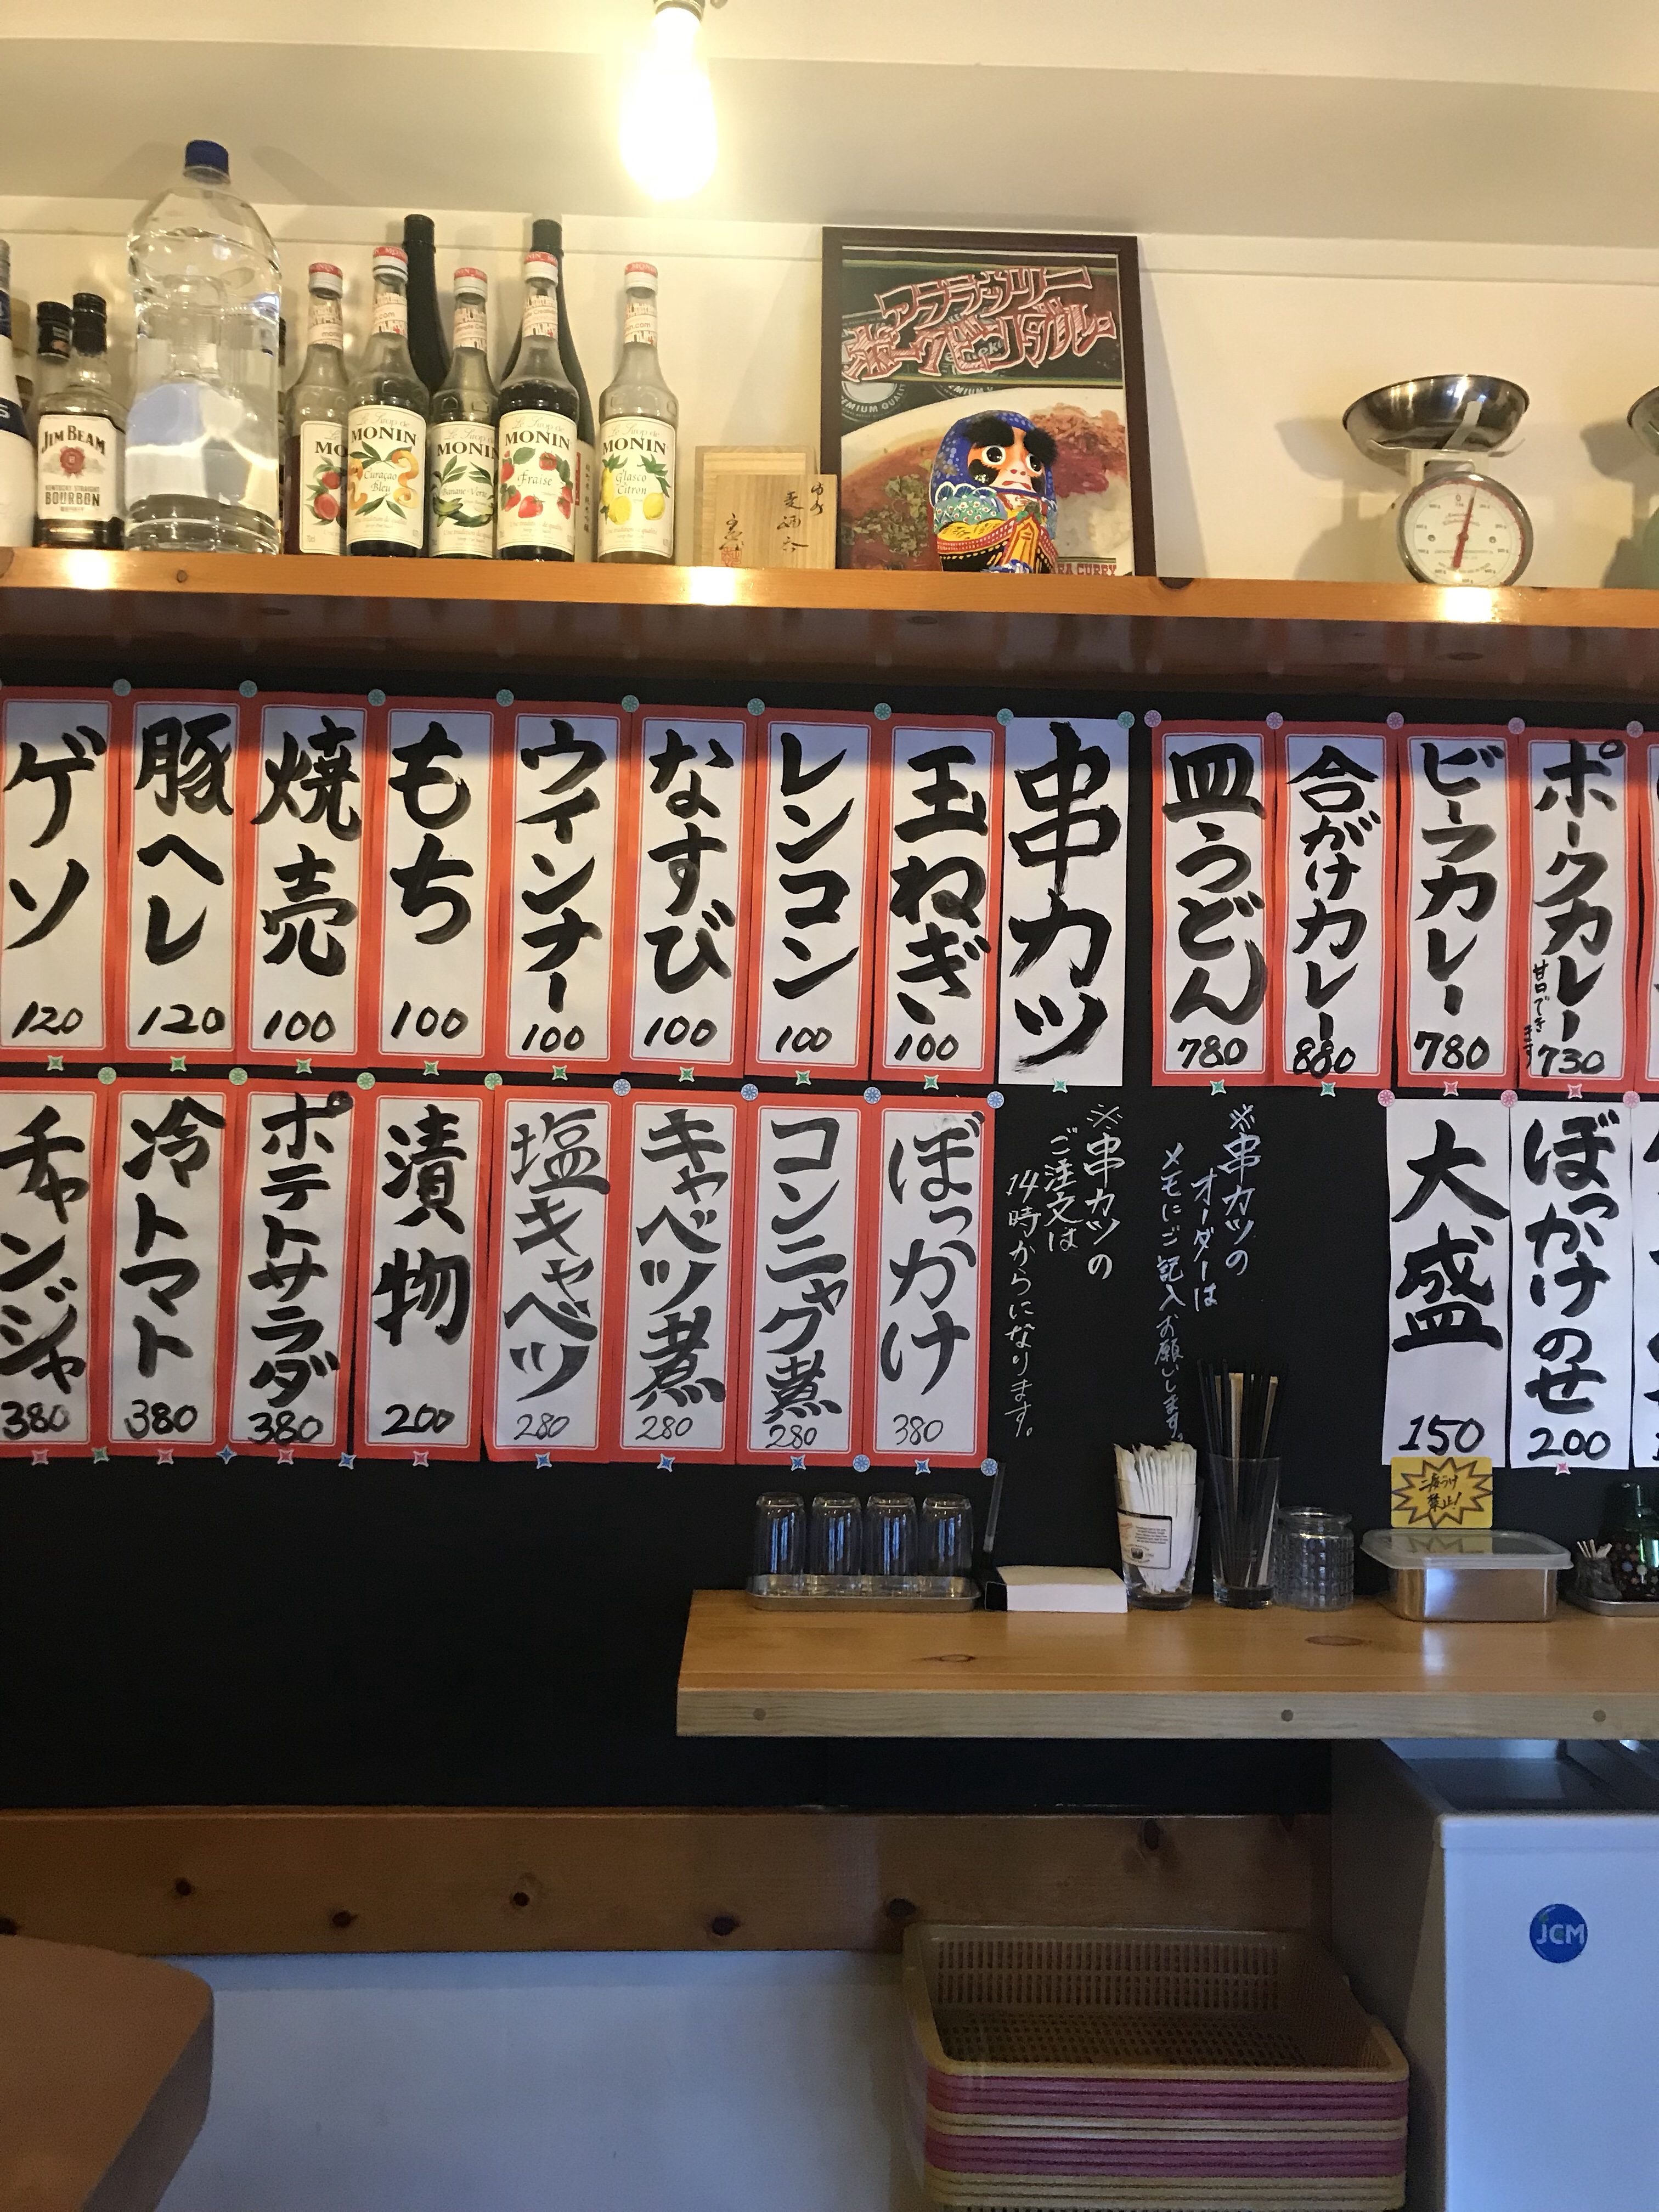 JIM BEAM
KENTUCKY STRAIGHT
BOURBON
MONIN
Le Sirop de
MONIN
Curaçao
Bleu
MONIN
Le Sirop de
MONIN
Fraise
Le Sirop de
MONIN
Glasco
Citron
カレー
PREMIUM QUALITY
CURRY
ポークカレー
甘口できます
730
ビーフカレー
780
合がけカレー
880
皿うどん
780
串カツ
玉ねぎ
100
レンコン
100
なすび
100
ウインナー
100
もち
100
焼売
100
豚ヘレ
120
ゲソ
120
ぼっかけのせ
200
大盛
150
※串カツの
オーダーは
メモにご記入お願いします。
※串カツの
ご注文は
14時からになります。
ぼっかけ
380
コンニャク煮
280
キャベツ煮
280
塩キャベツ
280
漬物
200
ポテトサラダ
380
冷トマト
380
チャンジャ
380
二度づけ
禁止!
JCM